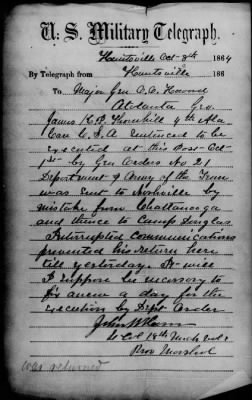 U. S. Military Telegraph.
Huntsville Oct 8th 1864
By Telegraph from Huntsville 186
To Major Gen O. O. Howard
Atlanta Geo.
James R. P. Thornhill 4th Ala
Cav C. S. A Sentenced to be
executed at this Post Oct
1st by Gen Orders No 21
Department & Army of the Tenn
was sent to Nashville by
mistake from Chattanooga
and thence to Camp Douglas
Interrupted communications
prevented his return here
till yesterday. It will
I suppose be necessary to
fix anew a day for the
execution by Dept Order
John W Horn
Lt Col 18th Mich Vols
Prov Marshal
was returned